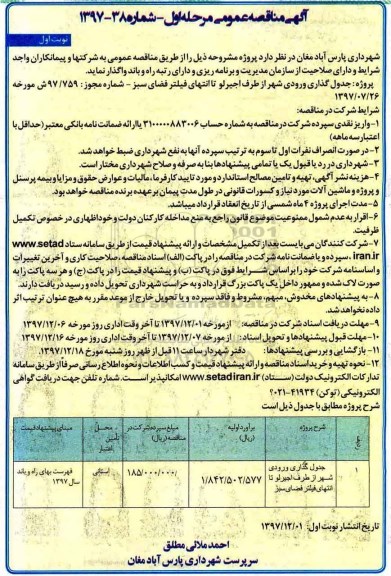 آگهی مناقصه عمومی مرحله اول - شماره ۳۸-۱۳۹۷
نوبت اول
شهرداری پارس آباد مغان در نظر دارد پروژه مشروحه ذیل را از طریق مناقصه عمومی به شرکتها و پیمانکاران واجد
شرایط و دارای صلاحیت از سازمان مدیریت و برنامه ریزی و دارای رتبه راه و باند واگذار نماید.
پروژه: جدول گذاری ورودی شهر از طرف اجیرلو تا انتهای فیلتر فضای سبز - شماره مجوز: ۹۷/۷۵۹ ش مورخه
۱۳۹۷/۰۷/۲۶
شرایط شرکت در مناقصه:
۱- واریز نقدی سپرده شرکت در مناقصه به شماره حساب ۳۱۰۰۰۰۰۸۸۳۰۰۶ یا ارائه ضمانت نامه بانکی معتبر (حداقل با
اعتبار سه ماهه)
۲- در صورت انصراف نفرات اول تا سوم به ترتیب سپرده آنها به نفع شهرداری ضبط خواهد شد.
۳- شهرداری در رد یا قبول یک یا تمامی پیشنهادها بنا به صرفه و صلاح شهرداری مختار است.
۴- هزینه نشر آگهی، تهیه و تامین مصالح استاندارد و مورد تایید کارفرما، مالیات و عوارض حقوق و مزایا و بیمه پرسنل
و پروژه و ماشین آلات مورد نیاز و کسورات قانونی در طول مدت پیمان بر عهده برنده مناقصه خواهد بود.
۵- مدت اجرای پروژه ۴ ماه شمسی از تاریخ انعقاد قرارداد میباشد.
۶- اقرار به عدم شمول ممنوعیت موضوع قانون راجع به منع مداخله کارکنان دولت و خوداظهاری در خصوص تکمیل
ظرفیت.
۷- شرکت کنندگان می بایست بعد از تکمیل مشخصات و ارائه پیشنهاد قیمت از طریق سامانه ستاد www.setad
iran.ir، سپرده و یا ضمانت نامه شرکت در مناقصه را در پاکت (الف) اسناد مناقصه، صلاحیت کاری و آخرین تغییرات
و اساسنامه شرکت خود را بر اساس شرایط فوق در پاکت (ب) و پیشنهاد قیمت را در پاکت (ج) و هر سه پاکت را به
صورت لاک شده و ممهور داخل یک پاکت بزرگ قرارداد و به حراست شهرداری تحویل داده و رسید دریافت دارند.
۸- به پیشنهادهای مخدوش، مبهم، مشروط و فاقد سپرده و یا تحویل خارج از موعد مقرر به هیچ عنوان ترتیب اثر
داده نخواهد شد.
۹- مهلت دریافت اسناد شرکت در مناقصه: از مورخه ۱۳۹۷/۱۲/۰۱ تا آخر وقت اداری روز مورخه ۱۳۹۷/۱۲/۰۶
۱۰- مهلت قبول پیشنهادها و تحویل اسناد: از مورخه ۱۳۹۷/۱۲/۰۷ تا آخر وقت اداری روز مورخه ۱۳۹۷/۱۲/۱۶
۱۱- بازگشایی و بررسی پیشنهادها: دفتر شهردار ساعت ۱۱ قبل از ظهر روز شنبه مورخ ۱۳۹۷/۱۲/۱۸
۱۲- نحوه تهیه و خرید اسناد مناقصه و ارائه پیشنهاد قیمت و کسب اطلاعات و نحوه اطلاع رسانی صرفاً از طریق سامانه
تدارکات الکترونیک دولت (ستاد) www.setadiran.ir امکانپذیر است. شماره تلفن جهت دریافت گواهی
الکترونیکی (توکن) ۴۱۹۳۴-۰۲۱
شرح پروژه مطابق با جدول ذیل است
شرح پروژه برآورد اولیه (ریال) مبلغ سپرده شرکت در مناقصه (ریال) محل تأمین اعتبار مبنای پیشنهاد قیمت
۱ جدول گذاری ورودی شهر از طرف اجیرلو تا انتهای فیلتر فضای سبز ۱/۸۴۲/۵۰۲/۵۷۷ ۱۸۵/۰۰۰/۰۰۰ استانی فهرست بهای راه و باند سال ۱۳۹۷
تاریخ انتشار نوبت اول: ۱۳۹۷/۱۲/۰۱
احمد ملائی مطلق
سرپرست شهرداری پارس آباد مغان